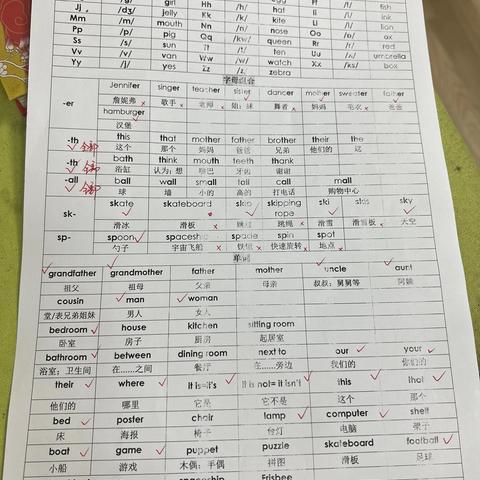 /g/ girl /h/ fish
Jj /dʒ/ jelly Kk /k/ kite Ll /l/ lion ink
Mm /m/ mouth Nn /n/ nose Oo /ɒ/ ox
Pp /p/ pig Qq /kw/ queen Rr /r/ red
Ss /s/ sun Tt /t/ ten umbrella
Vv /v/ van Ww /w/ wet /ks/ box
Yy /j/ yes Zz /z/ zebra
字母组合
-er Jennifer singer teacher sister dancer mother sweater father
詹妮弗 歌手 老师 舞者 妈妈 毛衣 爸爸
hamburger
汉堡
-th this that mother father brother their the
这个 那个 妈妈 爸爸 兄弟 他们的 这
-th bath think mouth teeth thank
浴缸 认为；想 嘴巴 牙齿 谢谢
-all ball wall small tall call mall
球 墙 小的 高的 打电话 购物中心
sk- skate skateboard skip skipping rope ski skis sky
滑冰 滑板 跳绳 滑雪 滑雪板 天空
sp- spoon spaceship spade spin spot
勺子 宇宙飞船 快速旋转 地点
单词
grandfather grandmother father mother uncle aunt
祖父 祖母 父亲 母亲 叔叔；舅舅等 阿姨
cousin man woman
堂/表兄弟姐妹 男人 女人
bedroom house kitchen sitting room
卧室 房子 厨房 起居室
bathroom between dining room next to our your
浴室；卫生间 在……之间 餐厅 在……旁边 我们的 你们的
their where it is=it's it is not= it isn't this that
他们的 哪里 它是 它不是 这个 那个
bed poster chair lamp computer shelf
床 海报 椅子 台灯 电脑 架子
boat game puppet puzzle skateboard football
小船 游戏 木偶；手偶 拼图 滑板 足球
spaceship Frisbee